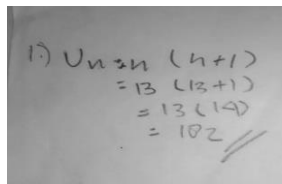 1.) Un = n (n+1)
= 13 (13+1)
= 13 (14)
= 182